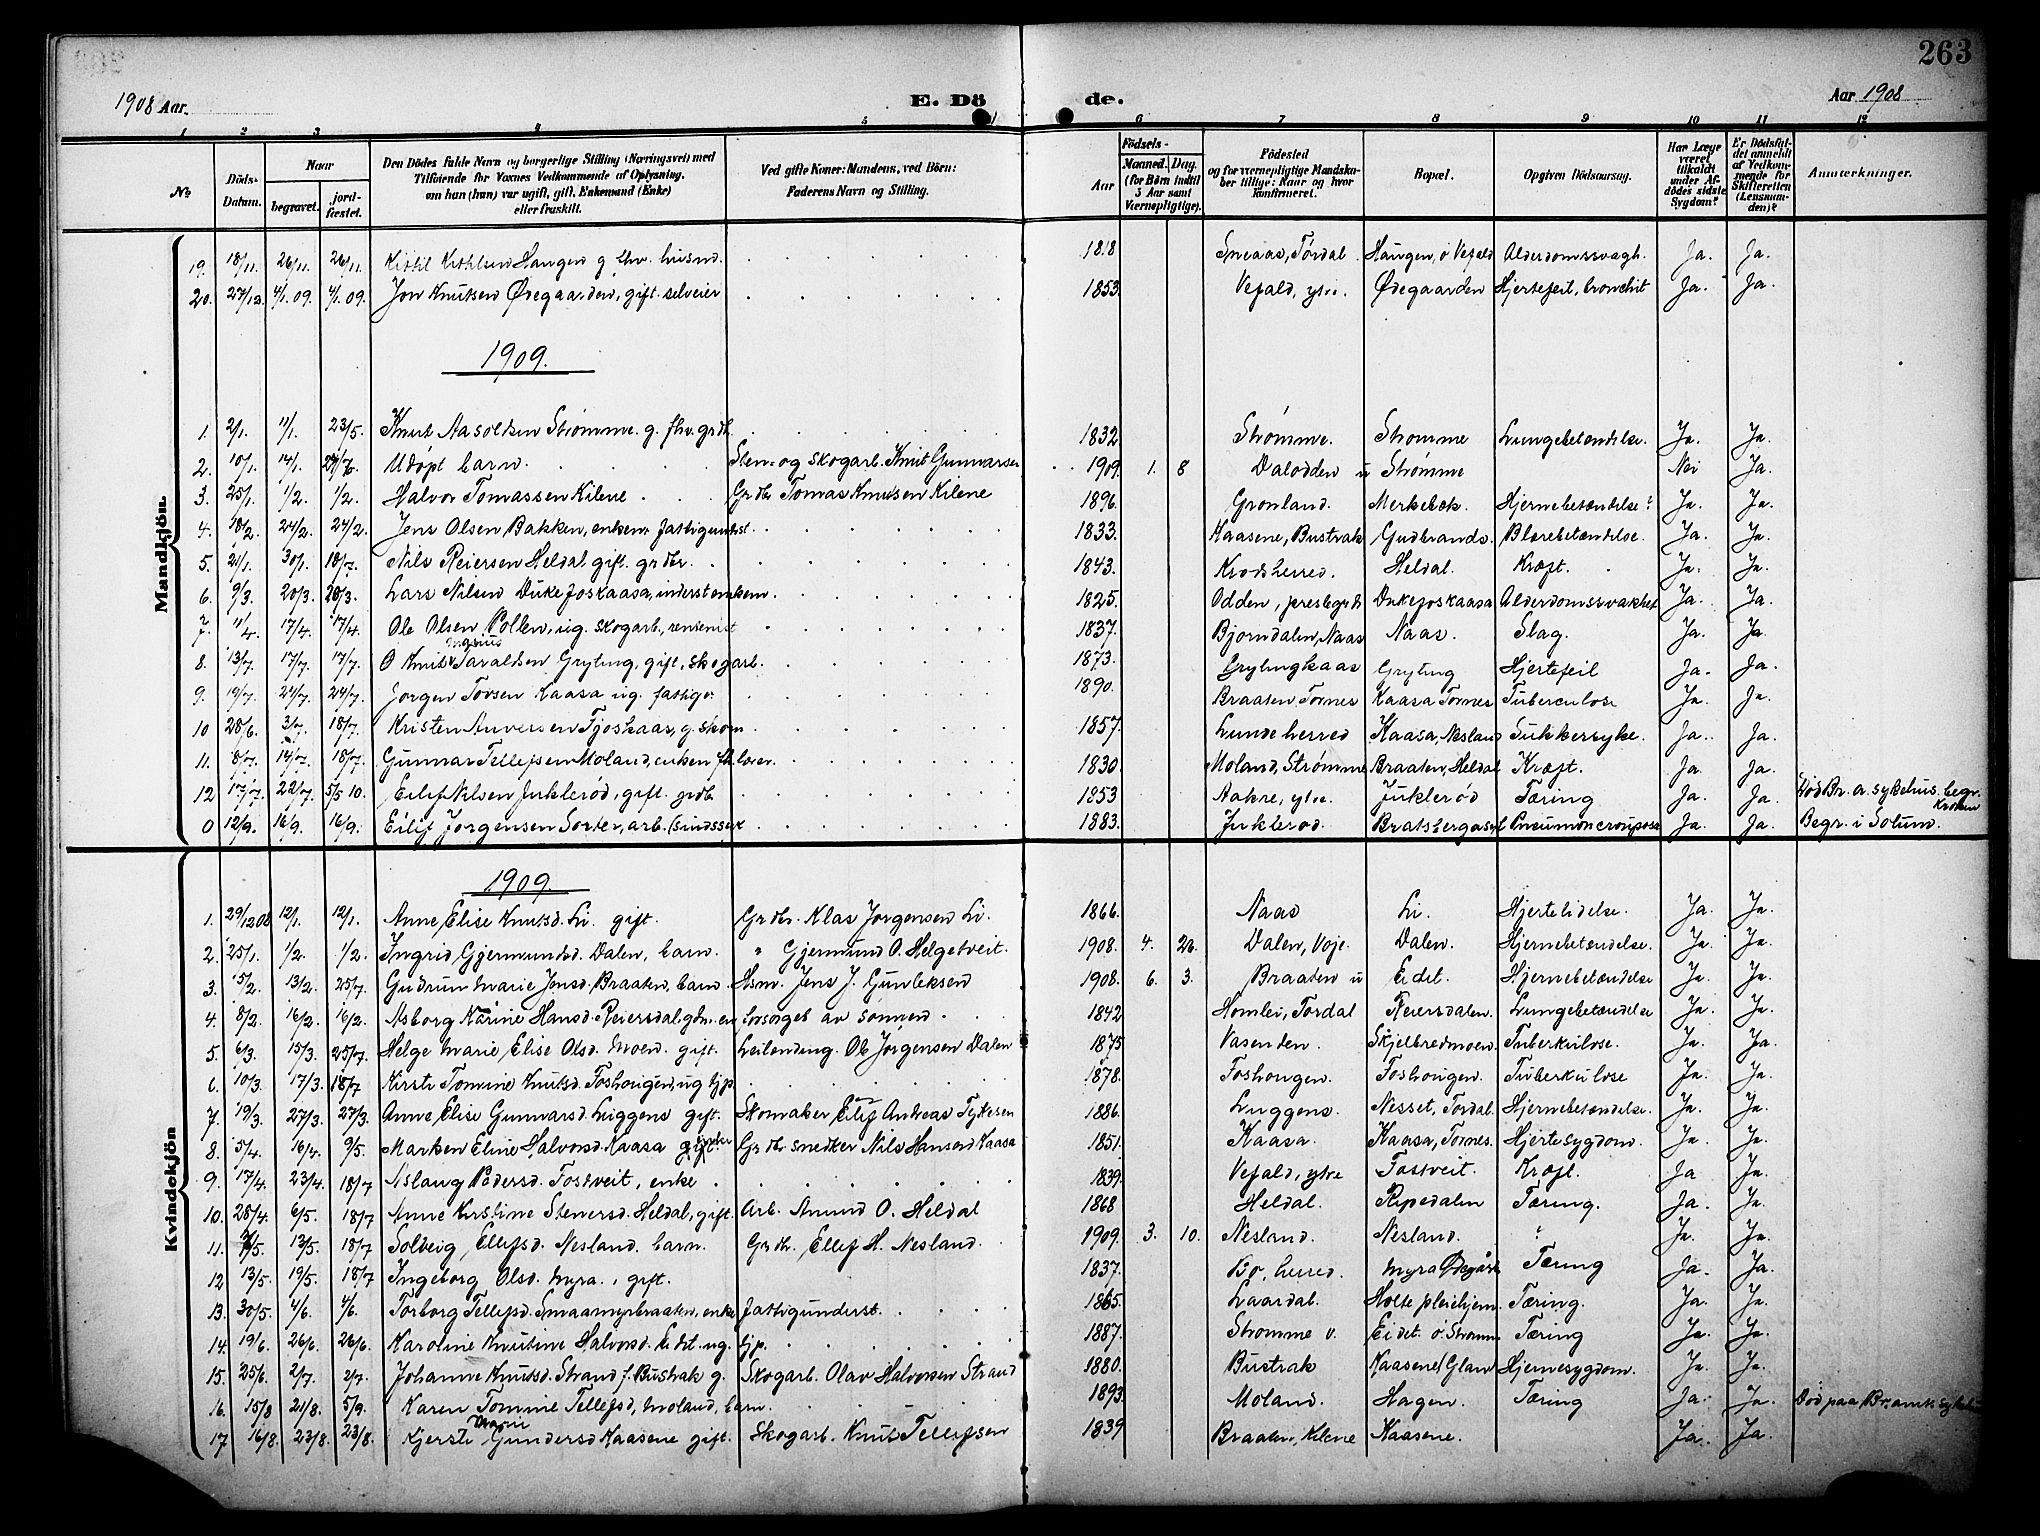 263
1908 Aar.
E. Dö de.
Aar 1908
1 2 3 4 5 6 7 8 9 10 11 12
No
Döds-Datum.
Naar
begravet.
jord-fæstet.
Den Dödes fulde Navn og borgerlige Stilling (Næringsvei) med Tilføiende for Voxnes Vedkommende af Oplysning, om han (hun) var ugift, gift, Enkemand (Enke) eller fraskilt.
Ved gifte Koner: Mandens, ved Börn: Faderens Navn og Stilling.
Aar
Födsels-
Maaned. Dag.
(for Börn indtil 3 Aar samt Værnepligtige).
Födested og for værnepligtige Mandskaber tillige: Naar og hvor konfirmeret.
Bopæl.
Opgiven Dödsaarsag.
Har Læge været tilkaldt under Afdödes sidste Sygdom?
Er Dödsfaldet anmeldt af Vedkommende for Skifteretten (Lensmanden)?
Anmærkninger.
Mandkjön
19. 18/11. 26/11. 26/11. Kittil Kittilsen Haugen g. fhv. husmd. 1818 Sneaas, Tørdal Haugen, ø Vefald Alderdomssvagh. Ja. Ja.
20. 27/12. 4/1. 09. 4/1. 09. Jon Knutsen Ødegaarden, gift. selveier 1853. Vefald, ytre. Ødegaarden Hjertefeil, bronchit Ja. Ja.
1909.
1. 2/1. 11/1. 23/5. Knut Aasoldsen Strømme. g. fhv. grdb. 1832 Strømme. Strømme Lungebetændelse. Ja. Ja.
2. 10/1. 14/1. Udøpt barn. Sten- og skogarb. Knut Gunnarsen 1909. 1. 8 Dalodden u Strømme Nei Ja.
3. 25/1. 1/2. 1/2. Halvor Tomassen Kilene Grdbr. Tomas Knutsen Kilene 1896. Grønland. Merkebæk. Hjernebetændelse? Ja. Ja.
4. 18/2. 24/2. 24/2. Jens Olsen Bakken, enkem. fattigunderst. 1833. Kaasene, Bustrak Gudbrands. Blærebetændelse. Ja. Ja.
5. 21/1. 30/1. 18/7. Nils Reiersen Heldal gift. grdbr. 1843. Krødsherred. Heldal. Kræft. Ja. Ja.
6. 9/3. 20/3. 20/3. Lars Nilsen Dukefoskaasa, inderst enkem. 1825. Odden, prestegrd Dukefoskaasa Alderdomssvakhet Ja. Ja.
7. 11/4. 17/4. 17/4. Ole Olsen Pollen, ug. skogarb., rentenist 1837. Bjørndalen, Naas Naas. Slag. Ja. Ja.
8. 13/7. 17/7. 17/7. O Knut Ingvius Taraldsen Gryting, gift, skogarb. 1873. Grytingkaas Gryting Hjertefeil Ja. Ja.
9. 19/7. 24/7. 24/7. Jørgen Tovsen Kaasa ug. fattigv. 1890. Braaten Tornes Kaasa Tornes Tuberculose Ja. Ja.
10 28/6. 3/7. 18/7. Kristen Anversen Fjoskaas, g. skom 1857. Lunde herred Kaasa, Nesland Sukkersyke. Ja. Ja.
11. 8/7. 14/7. 18/7. Gunnar Tellefsen Moland, enkem. fh. lærer. 1830. Moland, Strømme Braaten, Heldal Kræft. Ja. Ja.
12 17/7. 22/7. 5/5 10. Eilef Nilsen Juklerød, gift. grdb. 1853 Aakre, ytre. Juklerød Tæring Ja. Ja. Død Br. a. sykehus. begr. Kroken
0 12/9. 16/9. 16/9. Eilif Jørgensen Sorter, arb. (sindssyk 1883. Juklerød. Bratsbergasyl Pneumon croupose Ja. Ja. Begr. i Solum.
Kvindekjön
1909.
1. 29/12 08 12/1. 12/1. Anne Elise Knutsd. Li. gift. Grdbr. Klas Jørgensen Li. 1866. Naas Li. Hjertelidelse. Ja. Ja.
2. 25/1. 1/2. 1/2. Ingrid Gjermundsd. Dalen, barn. " Gjermund O. Helgetveit. 1908. 4. 22. Dalen, Voje. Dalen. Hjernebetændelse. Ja. Ja.
3. 5/2. 13/2. 25/7. Gudrun Marie Jensd. Braaten, barn. Hsm. Jens J. Gunleksen 1908. 6. 3. Braaten u Eidet. Hjernebetændelse Ja. Ja.
4. 8/2. 16/2. 16/2. Asborg Karine Hansd. Reiersdal, gdm. en forsørget av sønnen 1842 Homlei, Tørdal Reiersdalen. Lungebetændelse Ja. Ja.
5. 6/3. 15/3. 25/7. Helge Marie Elise Olsd. Moen. gift. Leilending. Ole Jørgensen Dalen 1875 Vasenden. Skjelbredmoen. Tuberkulose. Ja. Ja.
6. 10/3. 17/3. 18/7 Kirsti Tomine Knutsd. Foshougen, ug tjp. 1878. Foshougen. Foshougen. Tuberkulose Ja. Ja.
7. 19/3. 27/3. 27/3. Anne Elise Gunnarsd. Luggens gift. Skomaker Elef Andreas Tykesen 1886. Luggens. Nesset, Tørdal. Hjernebetændelse. Ja. Ja.
8. 5/4. 16/4. 9/5. Marken Eline Halvorsd. Kaasa gift. Grdbr snedker Nils Hansen Kaasa 1851. Kaasa. Kaasa, Tornes. Hjertesygdom. Ja. Ja.
9. 17/4. 23/4. 18/7 Aslaug Pedersd. Tostveit, enke. 1839. Vefald, ytre Tostveit. Kræft. Ja Ja.
10. 28/4. 6/5. 18/7 Anne Kirstine Stenersd. Heldal, gift. Arb. Amund O. Heldal 1868 Heldal. Ripedalen Tæring. Ja. Ja.
11. /5. 13/5. 18/7 Solveig Ellefsd. Nesland. barn. Grdbr. Ellef H. Nesland. 1909. 3. 10. Nesland. Nesland. ? Ja. Ja.
12 13/5. 19/5. 18/7 Ingeborg Olsd. Myra, gift. 1837. Bø, herred. Myra Ødegård Tæring Ja. Ja.
13. 30/5. 4/6. 4/6. Torborg Tellefsd. Smaamyrbraaten, enke fattigunderst. 1865. Laardal. Holte pleiehjem. Tæring. Ja. Ja.
14. 19/6. 26/6. 26/6. Karoline Knutine Halvorsd. Eidet. ug. tjp. 1887. Strømme v. Eidet. ø. Strømm Tæring Ja. Ja.
15. 25/6. 2/7. 2/7. Johanne Knutsd. Strand f. Bustrak g. Skogarb. Olav Halvorsen Strand 1880. Bustrak Kaasene/Glan Hjernesygdom. Ja. Ja.
16. 15/8 21/8. 5/9. Karen Tomine Tellefsd, Moland, barn. 1893. Moland. Hagen. Tæring Ja. Ja. Død paa Br. amts syke
17 16/8. 23/8. 23/8. Kjersti Marie Gundersd Kaasene gift. Skogarb. Knut Tellefsen 1839 Braaten, Kilene Kaasene. Ja. Ja.